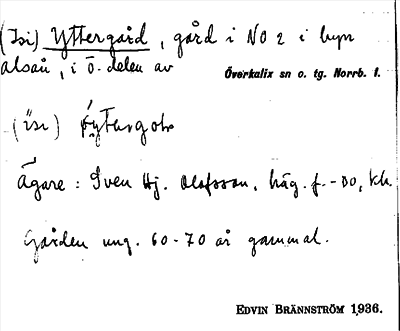 (Isi) Yttergård, gård i No 2 i byn
alsån, i ö. delen av
Överkalix sn o. tg. Norrb. l.
(isi)
Ägare: Sven Hj. Olofsson, häg. f. -00, kh.
Gården ung. 60-70 år gammal.
EDVIN BRÄNNSTRÖM 1936.